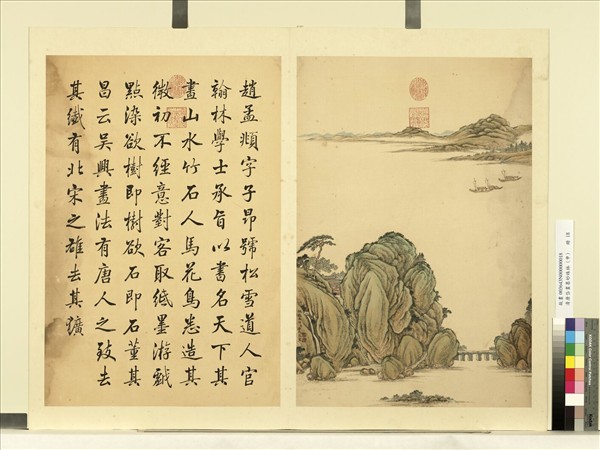 趙孟頫字子昂號松雪道人官
翰林學士承旨以書名天下其
畫山水竹石人馬花鳥悉造其
微初不經意對客取紙墨游戲
點染欲樹即樹欲石即石董其
昌云吳興畫法有唐人之致去
其纖有北宋之雄去其獷